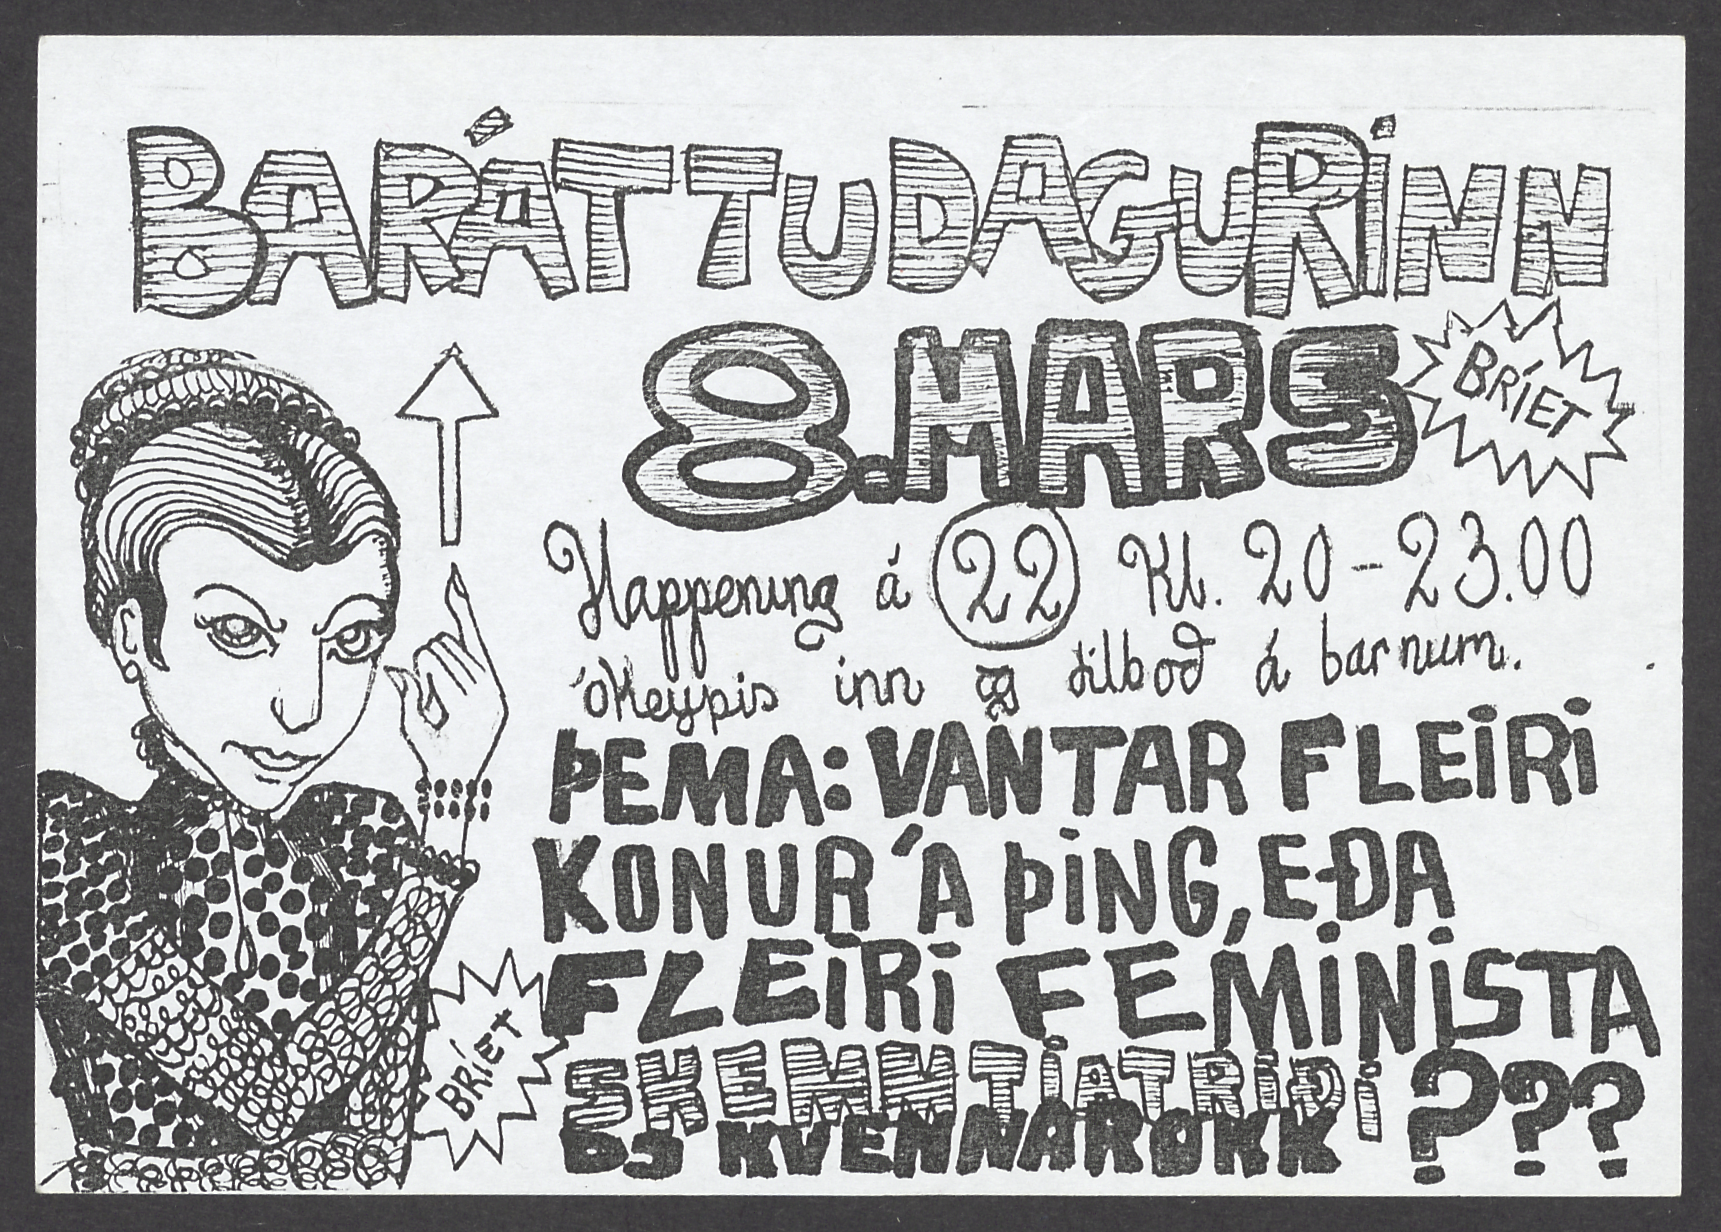 BARÁTTUDAGURINN
8. MARS
BRÍET
Happening á 22 Kl. 20-23.00
ókeypis inn og tilboð á barnum.
ÞEMA: VANTAR FLEIRI
KONUR Á ÞING, EÐA
FLEIRI FEMÍNISTA
???
BRÍET
SKEMMTIATRIÐI
DJ KVENNAROKK